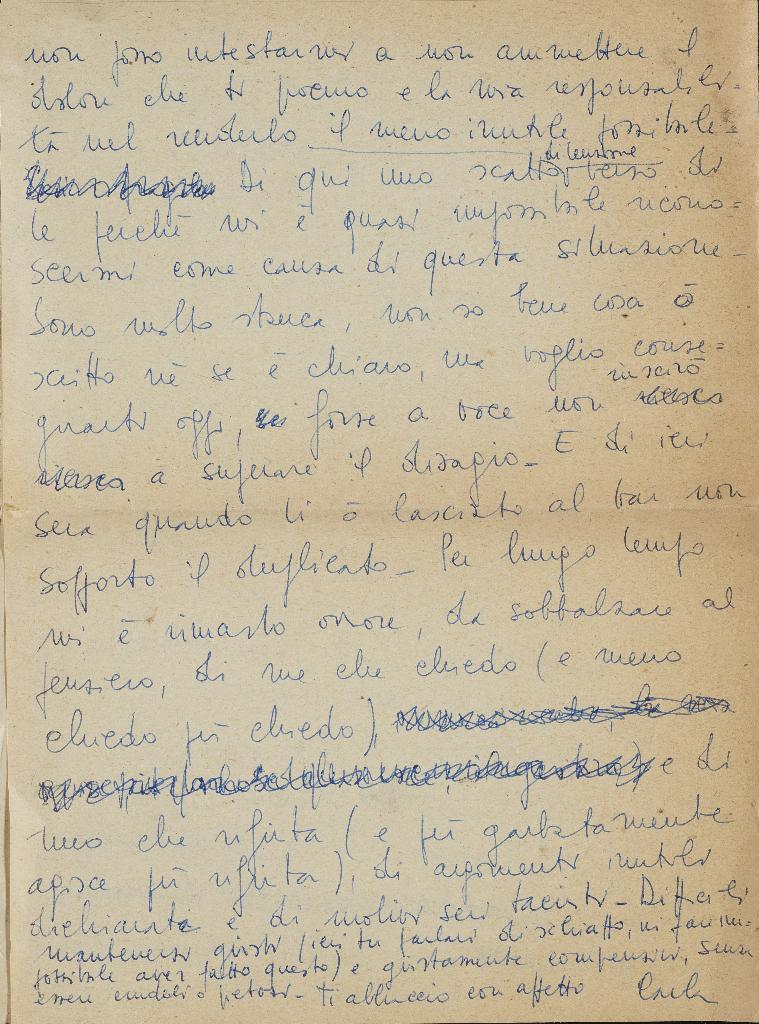 non posso intestarmi a non ammettere il
dolore che ti procuro e la mia responsabili-
tà nel renderlo il meno inutile possibile -
Di qui uno scatto di tensione verso di
te perché mi è quasi impossibile ricono=
scermi come causa di questa situazione -
Sono molto stanca, non so bene cosa ò
scritto né se è chiaro, ma voglio conse=
gnarti oggi, forse a voce non riuscirò
a superare il disagio - E di ieri
sera quando ti ò lasciato al bar non
sopporto il duplicato - Per lungo tempo
mi è rimasto orrore, da sobbalzare al
pensiero, di me che chiedo (e meno
chiedo più chiedo),
e di
uno che rifiuta (e più garbatamente
agisce più rifiuta), di argomenti inutili
dichiarati e di motivi seri taciuti - Difficili
mantenersi giusti (ieri tu parlavi di schiaffo, mi pare im=
possibile aver fatto questo) e giustamente comprensivi, senza
essere crudeli o pietosi - Ti abbraccio con affetto Carla